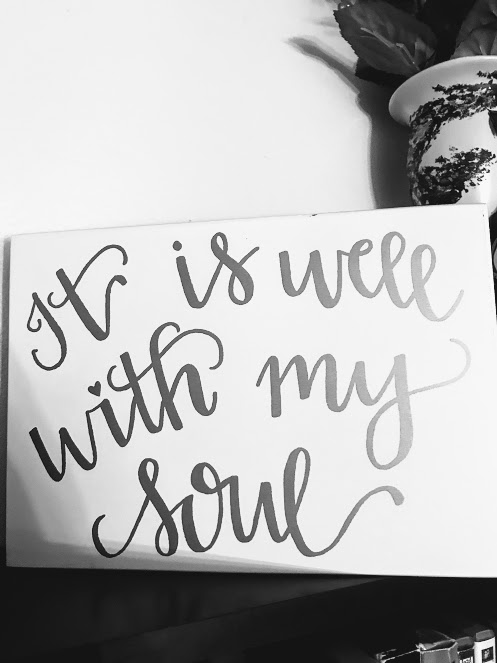 It is well
with my
soul